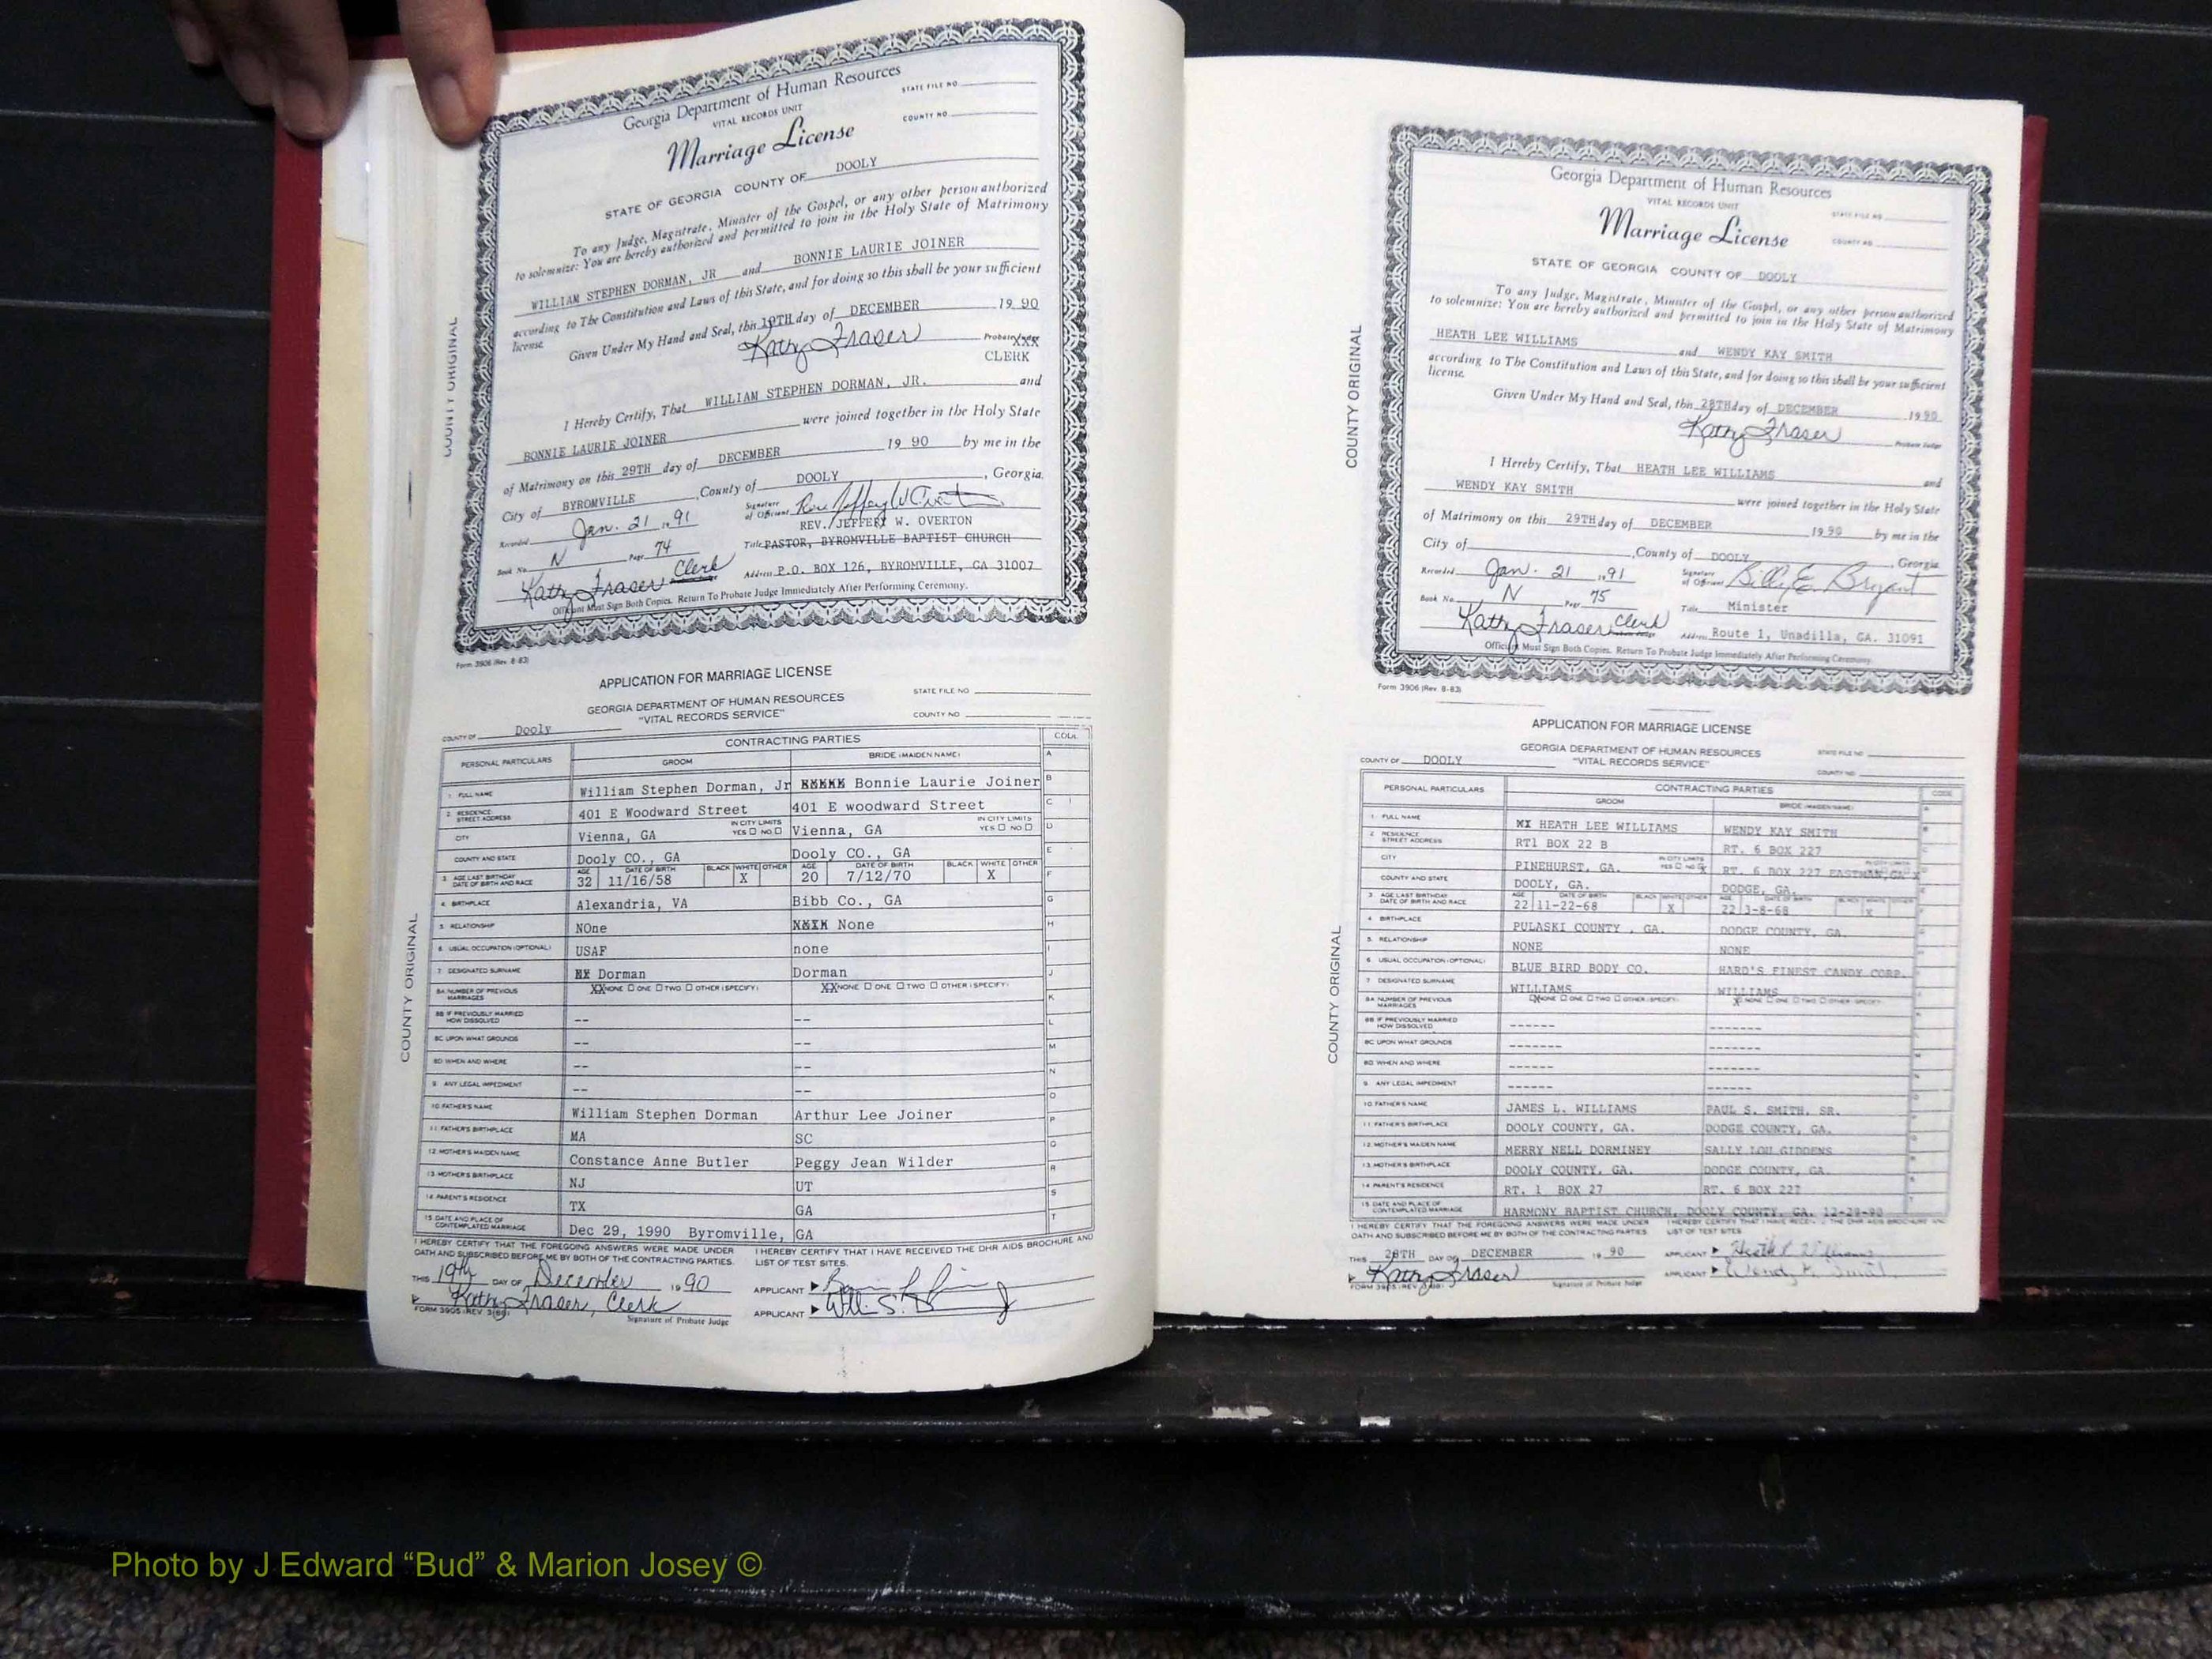 Georgia Department of Human Resources
VITAL RECORDS UNIT
STATE FILE NO.
Marriage License
COUNTY NO.
STATE OF GEORGIA COUNTY OF DOOLY
To any Judge, Magistrate, Minister of the Gospel, or any other person authorized
to solemnize: You are hereby authorized and permitted to join in the Holy State of Matrimony
WILLIAM STEPHEN DORMAN, JR and BONNIE LAURIE JOINER
according to The Constitution and Laws of this State, and for doing so this shall be your sufficient
license.
Given Under My Hand and Seal, this 19TH day of DECEMBER 19 90
Kathy Fraser Probate XXX
CLERK
I Hereby Certify, That WILLIAM STEPHEN DORMAN, JR. and
BONNIE LAURIE JOINER were joined together in the Holy State
of Matrimony on this 29TH day of DECEMBER 19 90 by me in the
City of BYROMVILLE, County of DOOLY, Georgia.
Recorded Jan. 21 1991
Signature of Officiant Rev. Jeffery W. Overton
REV. JEFFERY W. OVERTON
Book No. N Page 74
Title PASTOR, BYROMVILLE BAPTIST CHURCH
Kathy Fraser Clerk
Address P.O. BOX 126, BYROMVILLE, GA 31007
Officiant Must Sign Both Copies. Return To Probate Judge Immediately After Performing Ceremony.
Form 3906 (Rev. 8-83)
COUNTY ORIGINAL
APPLICATION FOR MARRIAGE LICENSE
GEORGIA DEPARTMENT OF HUMAN RESOURCES
"VITAL RECORDS SERVICE"
STATE FILE NO.
COUNTY NO.
COUNTY OF Dooly
PERSONAL PARTICULARS CONTRACTING PARTIES CODE
GROOM BRIDE (MAIDEN NAME)
1. FULL NAME William Stephen Dorman, Jr XXXXX Bonnie Laurie Joiner
2. RESIDENCE: STREET ADDRESS 401 E Woodward Street 401 E woodward Street
CITY Vienna, GA IN CITY LIMITS YES NO Vienna, GA IN CITY LIMITS YES NO
COUNTY AND STATE Dooly CO., GA Dooly CO., GA
3. AGE LAST BIRTHDAY DATE OF BIRTH AND RACE AGE 32 DATE OF BIRTH 11/16/58 BLACK WHITE X OTHER AGE 20 DATE OF BIRTH 7/12/70 BLACK WHITE X OTHER
4. BIRTHPLACE Alexandria, VA Bibb Co., GA
5. RELATIONSHIP NOne XXXX None
6. USUAL OCCUPATION (OPTIONAL) USAF none
7. DESIGNATED SURNAME XX Dorman Dorman
8A NUMBER OF PREVIOUS MARRIAGES XX NONE ONE TWO OTHER (SPECIFY) XX NONE ONE TWO OTHER (SPECIFY)
8B IF PREVIOUSLY MARRIED HOW DISSOLVED -- --
8C UPON WHAT GROUNDS -- --
8D WHEN AND WHERE -- --
9. ANY LEGAL IMPEDIMENT -- --
10 FATHER'S NAME William Stephen Dorman Arthur Lee Joiner
11 FATHER'S BIRTHPLACE MA SC
12 MOTHER'S MAIDEN NAME Constance Anne Butler Peggy Jean Wilder
13 MOTHER'S BIRTHPLACE NJ UT
14 PARENT'S RESIDENCE TX GA
15 DATE AND PLACE OF CONTEMPLATED MARRIAGE Dec 29, 1990 Byromville, GA
I HEREBY CERTIFY THAT THE FOREGOING ANSWERS WERE MADE UNDER
OATH AND SUBSCRIBED BEFORE ME BY BOTH OF THE CONTRACTING PARTIES.
I HEREBY CERTIFY THAT I HAVE RECEIVED THE DHR AIDS BROCHURE AND
LIST OF TEST SITES.
THIS 19th DAY OF December 1990
APPLICANT
Kathy Fraser, Clerk
APPLICANT
Signature of Probate Judge
COUNTY ORIGINAL
Georgia Department of Human Resources
VITAL RECORDS UNIT
STATE FILE NO.
Marriage License
COUNTY NO.
STATE OF GEORGIA COUNTY OF DOOLY
To any Judge, Magistrate, Minister of the Gospel, or any other person authorized
to solemnize: You are hereby authorized and permitted to join in the Holy State of Matrimony
HEATH LEE WILLIAMS and WENDY KAY SMITH
according to The Constitution and Laws of this State, and for doing so this shall be your sufficient
license.
Given Under My Hand and Seal, this 28TH day of DECEMBER 1990
Kathy Fraser Probate Judge
I Hereby Certify, That HEATH LEE WILLIAMS and
WENDY KAY SMITH were joined together in the Holy State
of Matrimony on this 29TH day of DECEMBER 1990 by me in the
City of , County of DOOLY, Georgia.
Recorded Jan. 21 1991
Signature of Officiant Billy E. Bryant
Book No. N Page 75
Title Minister
Kathy Fraser Clerk
Address Route 1, Unadilla, GA. 31091
Officiant Must Sign Both Copies. Return To Probate Judge Immediately After Performing Ceremony.
Form 3906 (Rev. 8-83)
COUNTY ORIGINAL
APPLICATION FOR MARRIAGE LICENSE
GEORGIA DEPARTMENT OF HUMAN RESOURCES
"VITAL RECORDS SERVICE"
STATE FILE NO
COUNTY NO
COUNTY OF DOOLY
PERSONAL PARTICULARS CONTRACTING PARTIES CODE
GROOM BRIDE (MAIDEN NAME)
1. FULL NAME XX HEATH LEE WILLIAMS WENDY KAY SMITH
2. RESIDENCE STREET ADDRESS RT1 BOX 22 B RT. 6 BOX 227
CITY PINEHURST, GA. IN CITY LIMITS YES NO X RT. 6 BOX 227 EASTMAN, GA
COUNTY AND STATE DOOLY, GA. DODGE, GA.
3. AGE LAST BIRTHDAY DATE OF BIRTH AND RACE 22 11-22-68 X 22 3-8-68 X
4. BIRTHPLACE PULASKI COUNTY , GA. DODGE COUNTY, GA.
5. RELATIONSHIP NONE NONE
6. USUAL OCCUPATION (OPTIONAL) BLUE BIRD BODY CO. HARD'S FINEST CANDY CORP.
7. DESIGNATED SURNAME WILLIAMS WILLIAMS
8A NUMBER OF PREVIOUS MARRIAGES X NONE ONE TWO OTHER (SPECIFY) X NONE ONE TWO OTHER (SPECIFY)
8B IF PREVIOUSLY MARRIED HOW DISSOLVED ------ -------
8C UPON WHAT GROUNDS ------ -------
8D WHEN AND WHERE ------ -------
9. ANY LEGAL IMPEDIMENT ------ ------
10 FATHER'S NAME JAMES L. WILLIAMS PAUL S. SMITH, SR.
11 FATHER'S BIRTHPLACE DOOLY COUNTY, GA. DODGE COUNTY, GA.
12 MOTHER'S MAIDEN NAME MERRY NELL DORMINEY SALLY LOU GIDDENS
13 MOTHER'S BIRTHPLACE DOOLY COUNTY, GA. DODGE COUNTY, GA.
14 PARENT'S RESIDENCE RT. 1 BOX 27 RT. 6 BOX 227
15 DATE AND PLACE OF CONTEMPLATED MARRIAGE HARMONY BAPTIST CHURCH, DOOLY COUNTY, GA. 12-29-90
I HEREBY CERTIFY THAT THE FOREGOING ANSWERS WERE MADE UNDER
OATH AND SUBSCRIBED BEFORE ME BY BOTH OF THE CONTRACTING PARTIES
LIST OF TEST SITES
THIS 28TH DAY OF DECEMBER 1990
APPLICANT Heath L. Williams
Kathy Fraser
APPLICANT Wendy K. Smith
Signature of Probate Judge
COUNTY ORIGINAL
Photo by J Edward “Bud” & Marion Josey ©